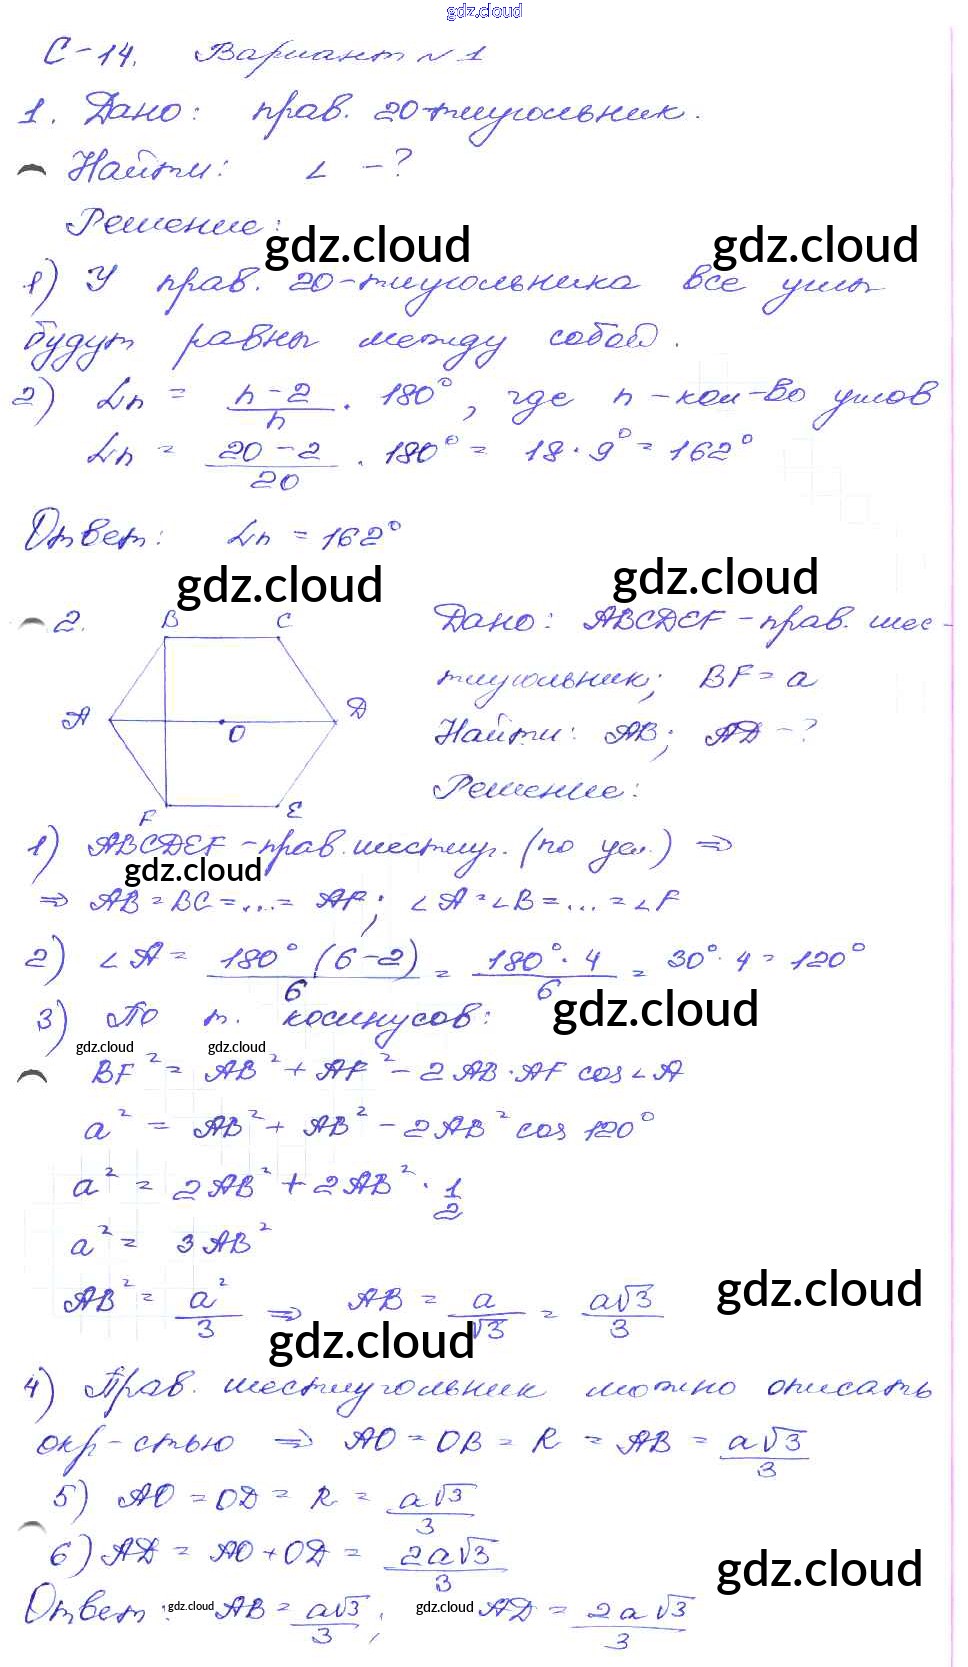 gdz.cloud
С-14. Вариант №1
1. Дано: прав. 20-тиугольник.
Найти: ∠ -?
Решение:
gdz.cloud gdz.cloud
1) У прав. 20-тиугольника все углы
будут равны между собой.
2) ∠n = (n-2)/n · 180°, где n - кол-во углов
∠n = (20-2)/20 · 180° = 18·9° = 162°
Ответ: ∠n = 162°
gdz.cloud gdz.cloud
2. B C
A O D
F E
Дано: ABCDEF - прав. шес-
тиугольник; BF = a
Найти: AB; AD -?
Решение:
1) ABCDEF - прав. шестиуг. (по усл.) ⇒
gdz.cloud
⇒ AB = BC = ... = AF; ∠A = ∠B = ... = ∠F
2) ∠A = 180°(6-2)/6 = 180°·4/6 = 30°·4 = 120°
3) По т. косинусов:
gdz.cloud
gdz.cloud gdz.cloud
BF² = AB² + AF² - 2AB·AF cos∠A
a² = AB² + AB² - 2AB² cos 120°
a² = 2AB² + 2AB² · 1/2
a² = 3AB²
AB² = a²/3 ⇒ AB = a/√3 = a√3/3
gdz.cloud
gdz.cloud
4) Прав. шестиугольник можно описать
окр-стью ⇒ AO = OB = R = AB = a√3/3
5) AO = OD = R = a√3/3
6) AD = AO + OD = 2a√3/3
gdz.cloud
Ответ: gdz.cloud AB = a√3/3; gdz.cloud AD = 2a√3/3